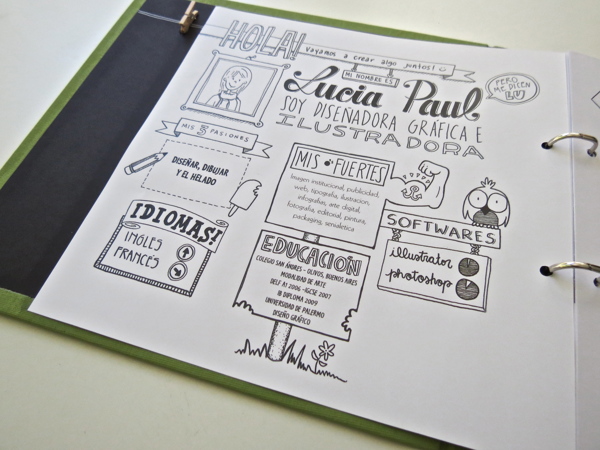 HOLA!
vayamos a crear algo juntos!
MI NOMBRE ES
Lucia Paul
PERO
ME DICEN
LU
SOY DISEÑADORA GRÁFICA E
ILUSTRADORA
MIS PASIONES
DISEÑAR, DIBUJAR
Y EL HELADO
MIS FUERTES
Imagen institucional, publicidad,
web, tipografia, ilustracion,
infografias, arte digital,
fotografia, editorial, pintura,
packaging, semialetica
SOFTWARES
illustrator
photoshop
¡IDIOMAS!
INGLÉS
FRANCÉS
EDUCACIÓN
COLEGIO SAN ANDRES - OLIVOS, BUENOS AIRES
MODALIDAD DE ARTE
DELF A1 2006 -IGCSE 2007
IB DIPLOMA 2009
UNIVERSIDAD DE PALERMO
DISEÑO GRÁFICO